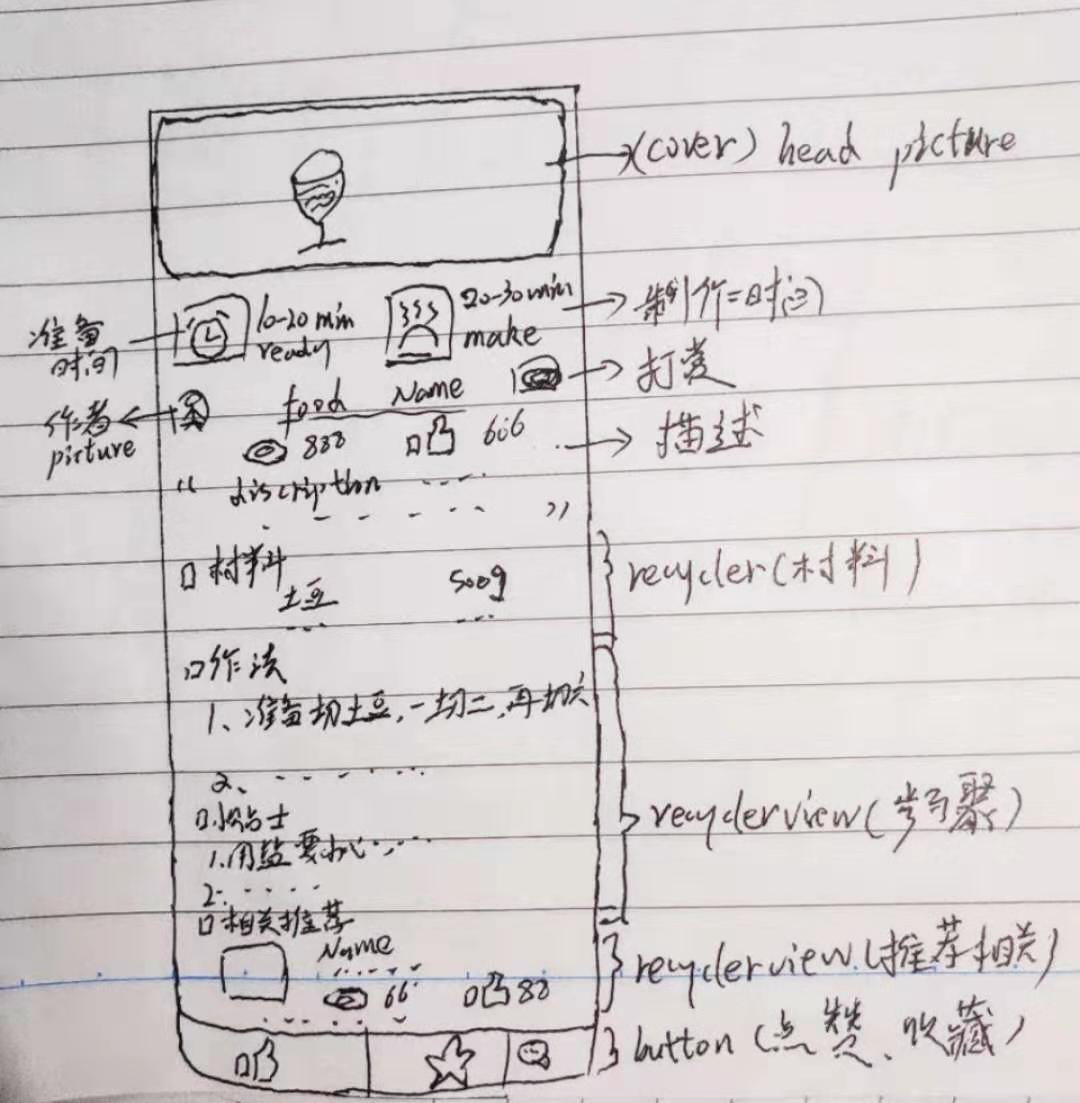 (cover) head picture
10-20 min
ready
20-30 min
make
制作时间
准备
时间
打赏
作者
picture
food Name
888
666
描述
“ discription
”
材料
土豆 500g
recycler(材料)
作法
1、准备切土豆,一切二,再切
2、
recyclerview(步聚)
小贴士
1.用盐要小心
2.
相关推荐
Name
66
88
recyclerview(推荐相关)
button(点赞、收藏)